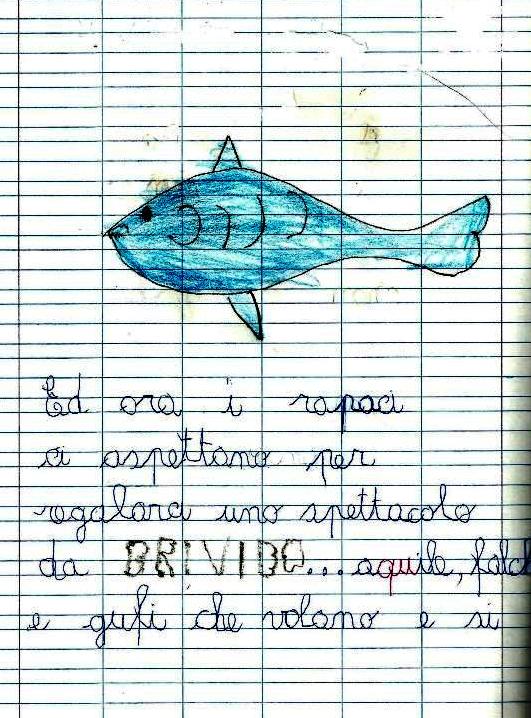 Ed ora i rapaci
ci aspettano per
regalarci uno spettacolo
da BRIVIDO... aquile, falch
e gufi che volano e si